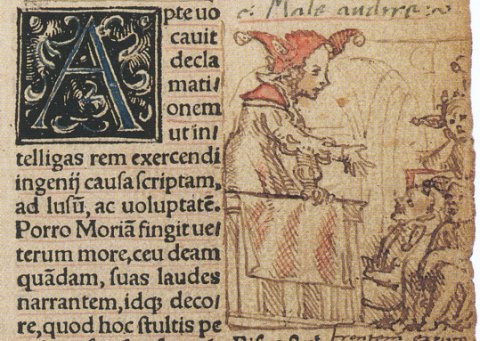 Apte uo
cauit
decla
mati/
onem
ut in/
telligas rem exercendi
ingenij causa scriptam,
ad lusũ, ac uoluptatẽ.
Porro Moriã fingit ue/
terum more, ceu deam
quãdam, suas laudes
narrantem, idq; deco/
re, quod hoc stultis pe
Male audire